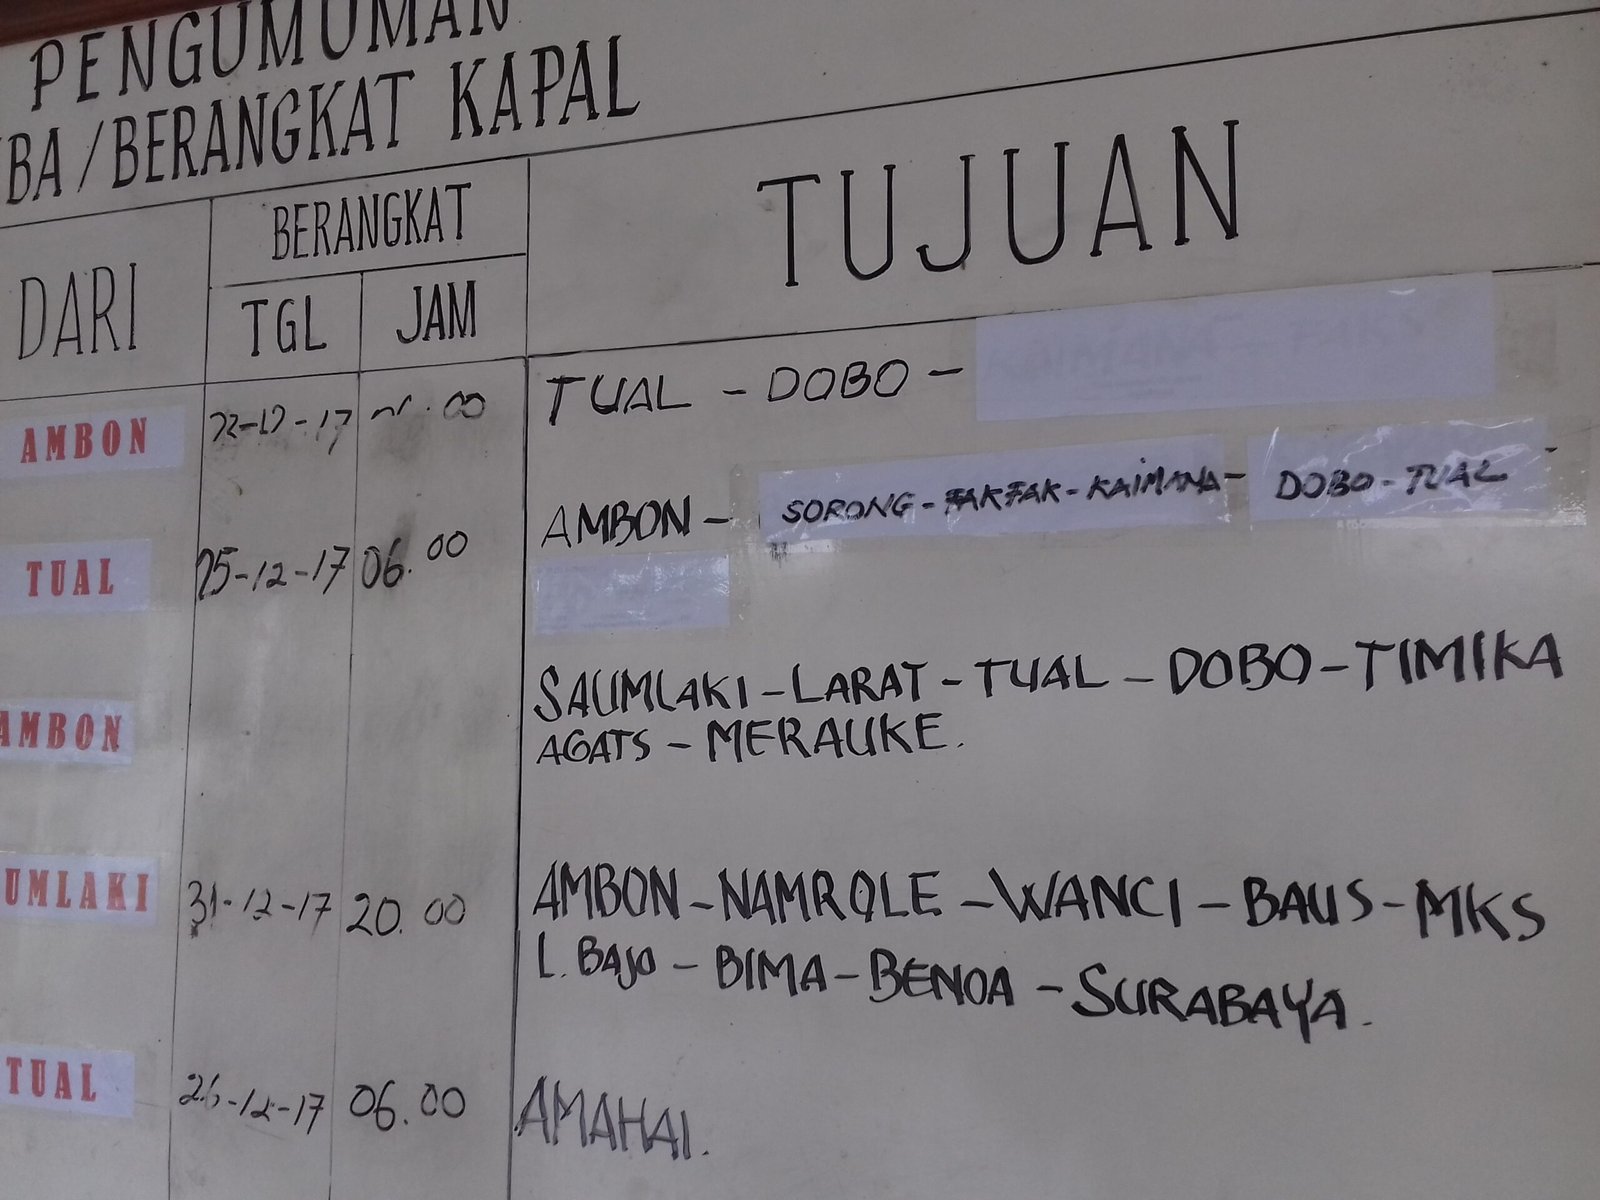 PENGUMUMAN
BA/BERANGKAT KAPAL
DARI
BERANGKAT
TGL
JAM
TUJUAN
AMBON
TUAL - DOBO -
TUAL
25-12-17
06.00
AMBON - SORONG - FAKFAK - KAIMANA - DOBO - TUAL -
AMBON
SAUMLAKI - LARAT - TUAL - DOBO - TIMIKA
AGATS - MERAUKE.
UMLAKI
31-12-17
20.00
AMBON - NAMROLE - WANCI - BAUS - MKS
L. BAJO - BIMA - BENOA - SURABAYA.
TUAL
26-12-17
06.00
AMAHAI.